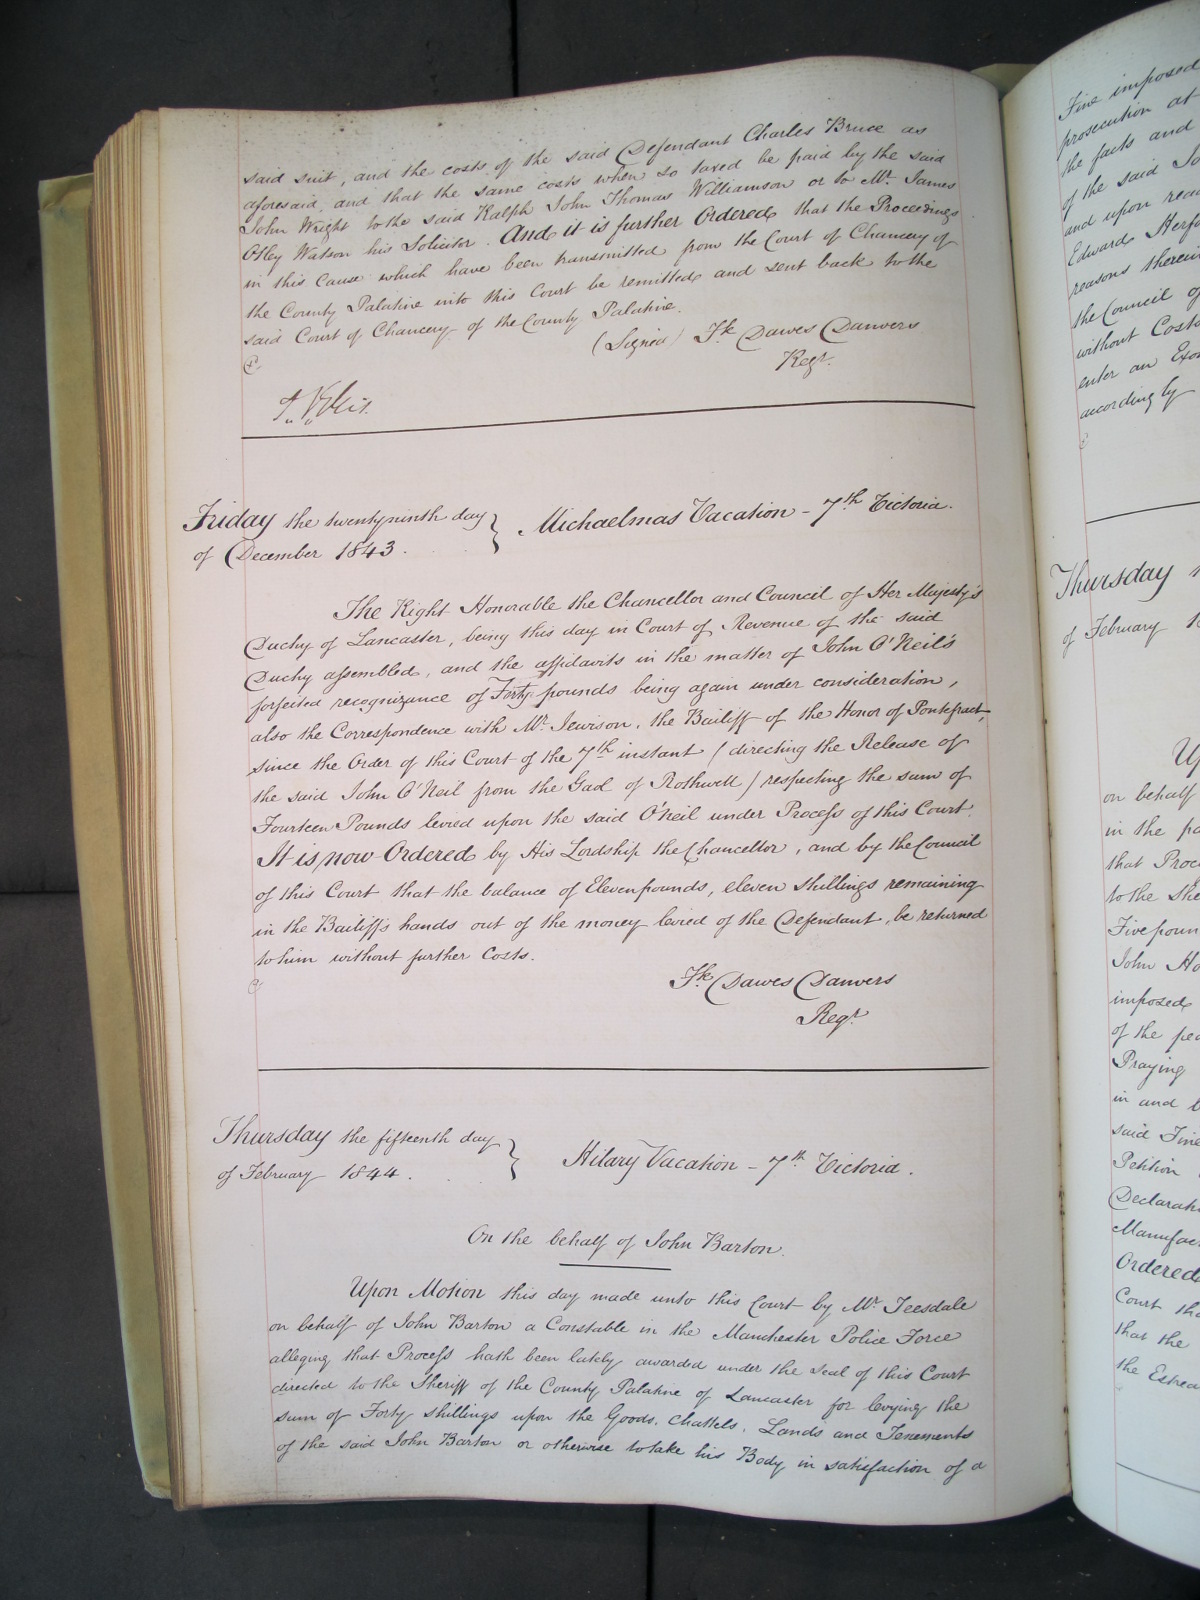 said suit, and the costs of the said Defendant Charles Bruce as
aforesaid, and that the same costs when so taxed be paid by the said
John Wright to the said Ralph John Thomas Williamson or to Mr. James
Otley Watson his Solicitor. And it is further Ordered that the Proceedings
in this Cause which have been transmitted from the Court of Chancery of
the County Palatine into this Court be remitted and sent back to the
said Court of Chancery of the County Palatine.
(Signed) Fk. Dawes Danvers
Regr.
Friday the twentyninth day
of December 1843.
Michaelmas Vacation - 7th Victoria.
The Right Honorable the Chancellor and Council of Her Majesty's
Duchy of Lancaster, being this day in Court of Revenue of the said
Duchy assembled, and the affidavits in the matter of John O'Neil's
forfeited recognizance of Forty pounds being again under consideration,
also the Correspondence with Mr. Jewison, the Bailiff of the Honor of Pontefract,
since the Order of this Court of the 7th instant (directing the Release of
the said John O'Neil from the Gaol of Rothwell) respecting the sum of
Fourteen Pounds levied upon the said O'Neil under Process of this Court.
It is now Ordered by His Lordship the Chancellor, and by the Council
of this Court that the balance of Eleven pounds, eleven shillings remaining
in the Bailiff's hands out of the money levied of the Defendant, be returned
to him without further Costs.
Fk. Dawes Danvers
Regr.
Thursday the fifteenth day
of February 1844.
Hilary Vacation - 7th Victoria.
On the behalf of John Barton.
Upon Motion this day made unto this Court by Mr. Teesdale
on behalf of John Barton a Constable in the Manchester Police Force
alleging that Process hath been lately awarded under the Seal of this Court
directed to the Sheriff of the County Palatine of Lancaster for levying the
sum of Forty shillings upon the Goods, Chattels, Lands and Tenements
of the said John Barton or otherwise to take his Body in satisfaction of a
Fine imposed
prosecution at
the facts and
of the said
and upon
Edward
reasons
the Council of
without Costs
enter an
accordingly
Thursday
of February
on behalf
in the
that
to the
Five poun
John
imposed
of the
Praying
in and
said Fine
Petition
Ordered
Court
that the
the